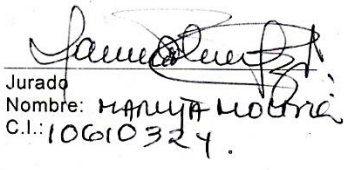 Jurado
Nombre: MARUJA MOLINA
C.I.: 10610324.